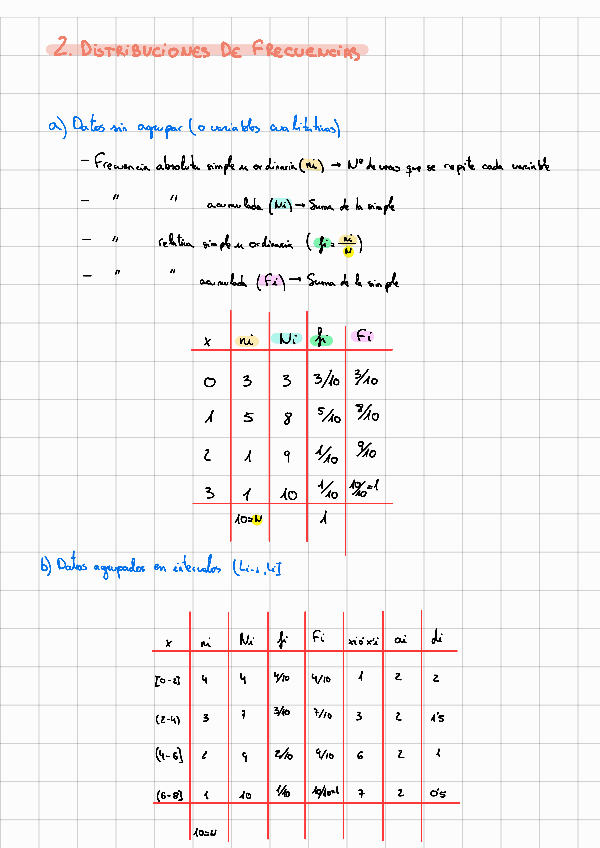 2. DISTRIBUCIONES DE FRECUENCIAS
a) Datos sin agrupar (o variables cualitativas)
- Frecuencia absoluta simple u ordinaria (ni) → Nº de veces que se repite cada variable
- " " acumulada (Ni) → Suma de la simple
- " relativa simple u ordinaria (fi = ni/N)
- " " acumulada (Fi) → Suma de la simple
x ni Ni fi Fi
0 3 3 3/10 3/10
1 5 8 5/10 8/10
2 1 9 1/10 9/10
3 1 10 1/10 10/10=1
10=N 1
b) Datos agrupados en intervalos (Li-1, Li]
x ni Ni fi Fi xi ó x'i ai di
[0-2] 4 4 4/10 4/10 1 2 2
(2-4) 3 7 3/10 7/10 3 2 1'5
(4-6] 2 9 2/10 9/10 6 2 1
(6-8] 1 10 1/10 10/10=1 7 2 0'5
10=N